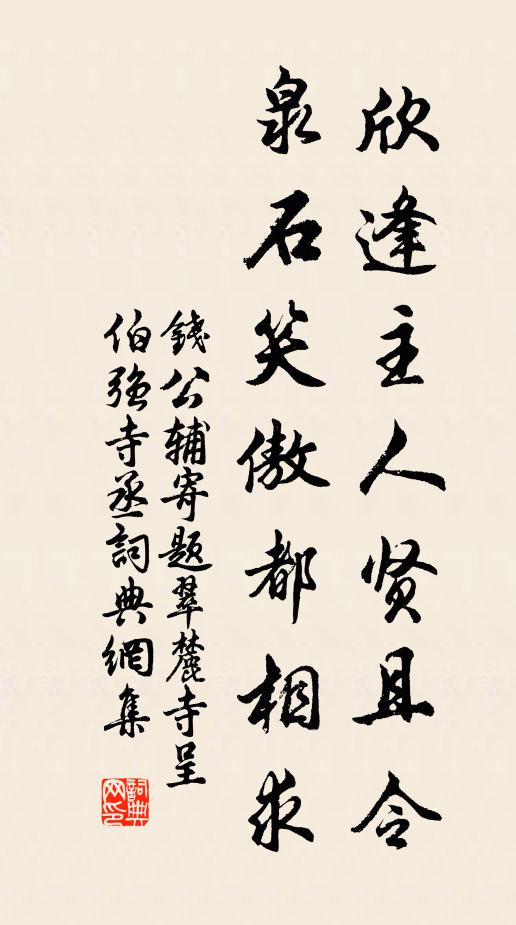 欣逢主人贤且令
泉石笑傲都相求
錢公辅寄题翠麓寺呈
伯強寺丞詞典網集
詞典
网印